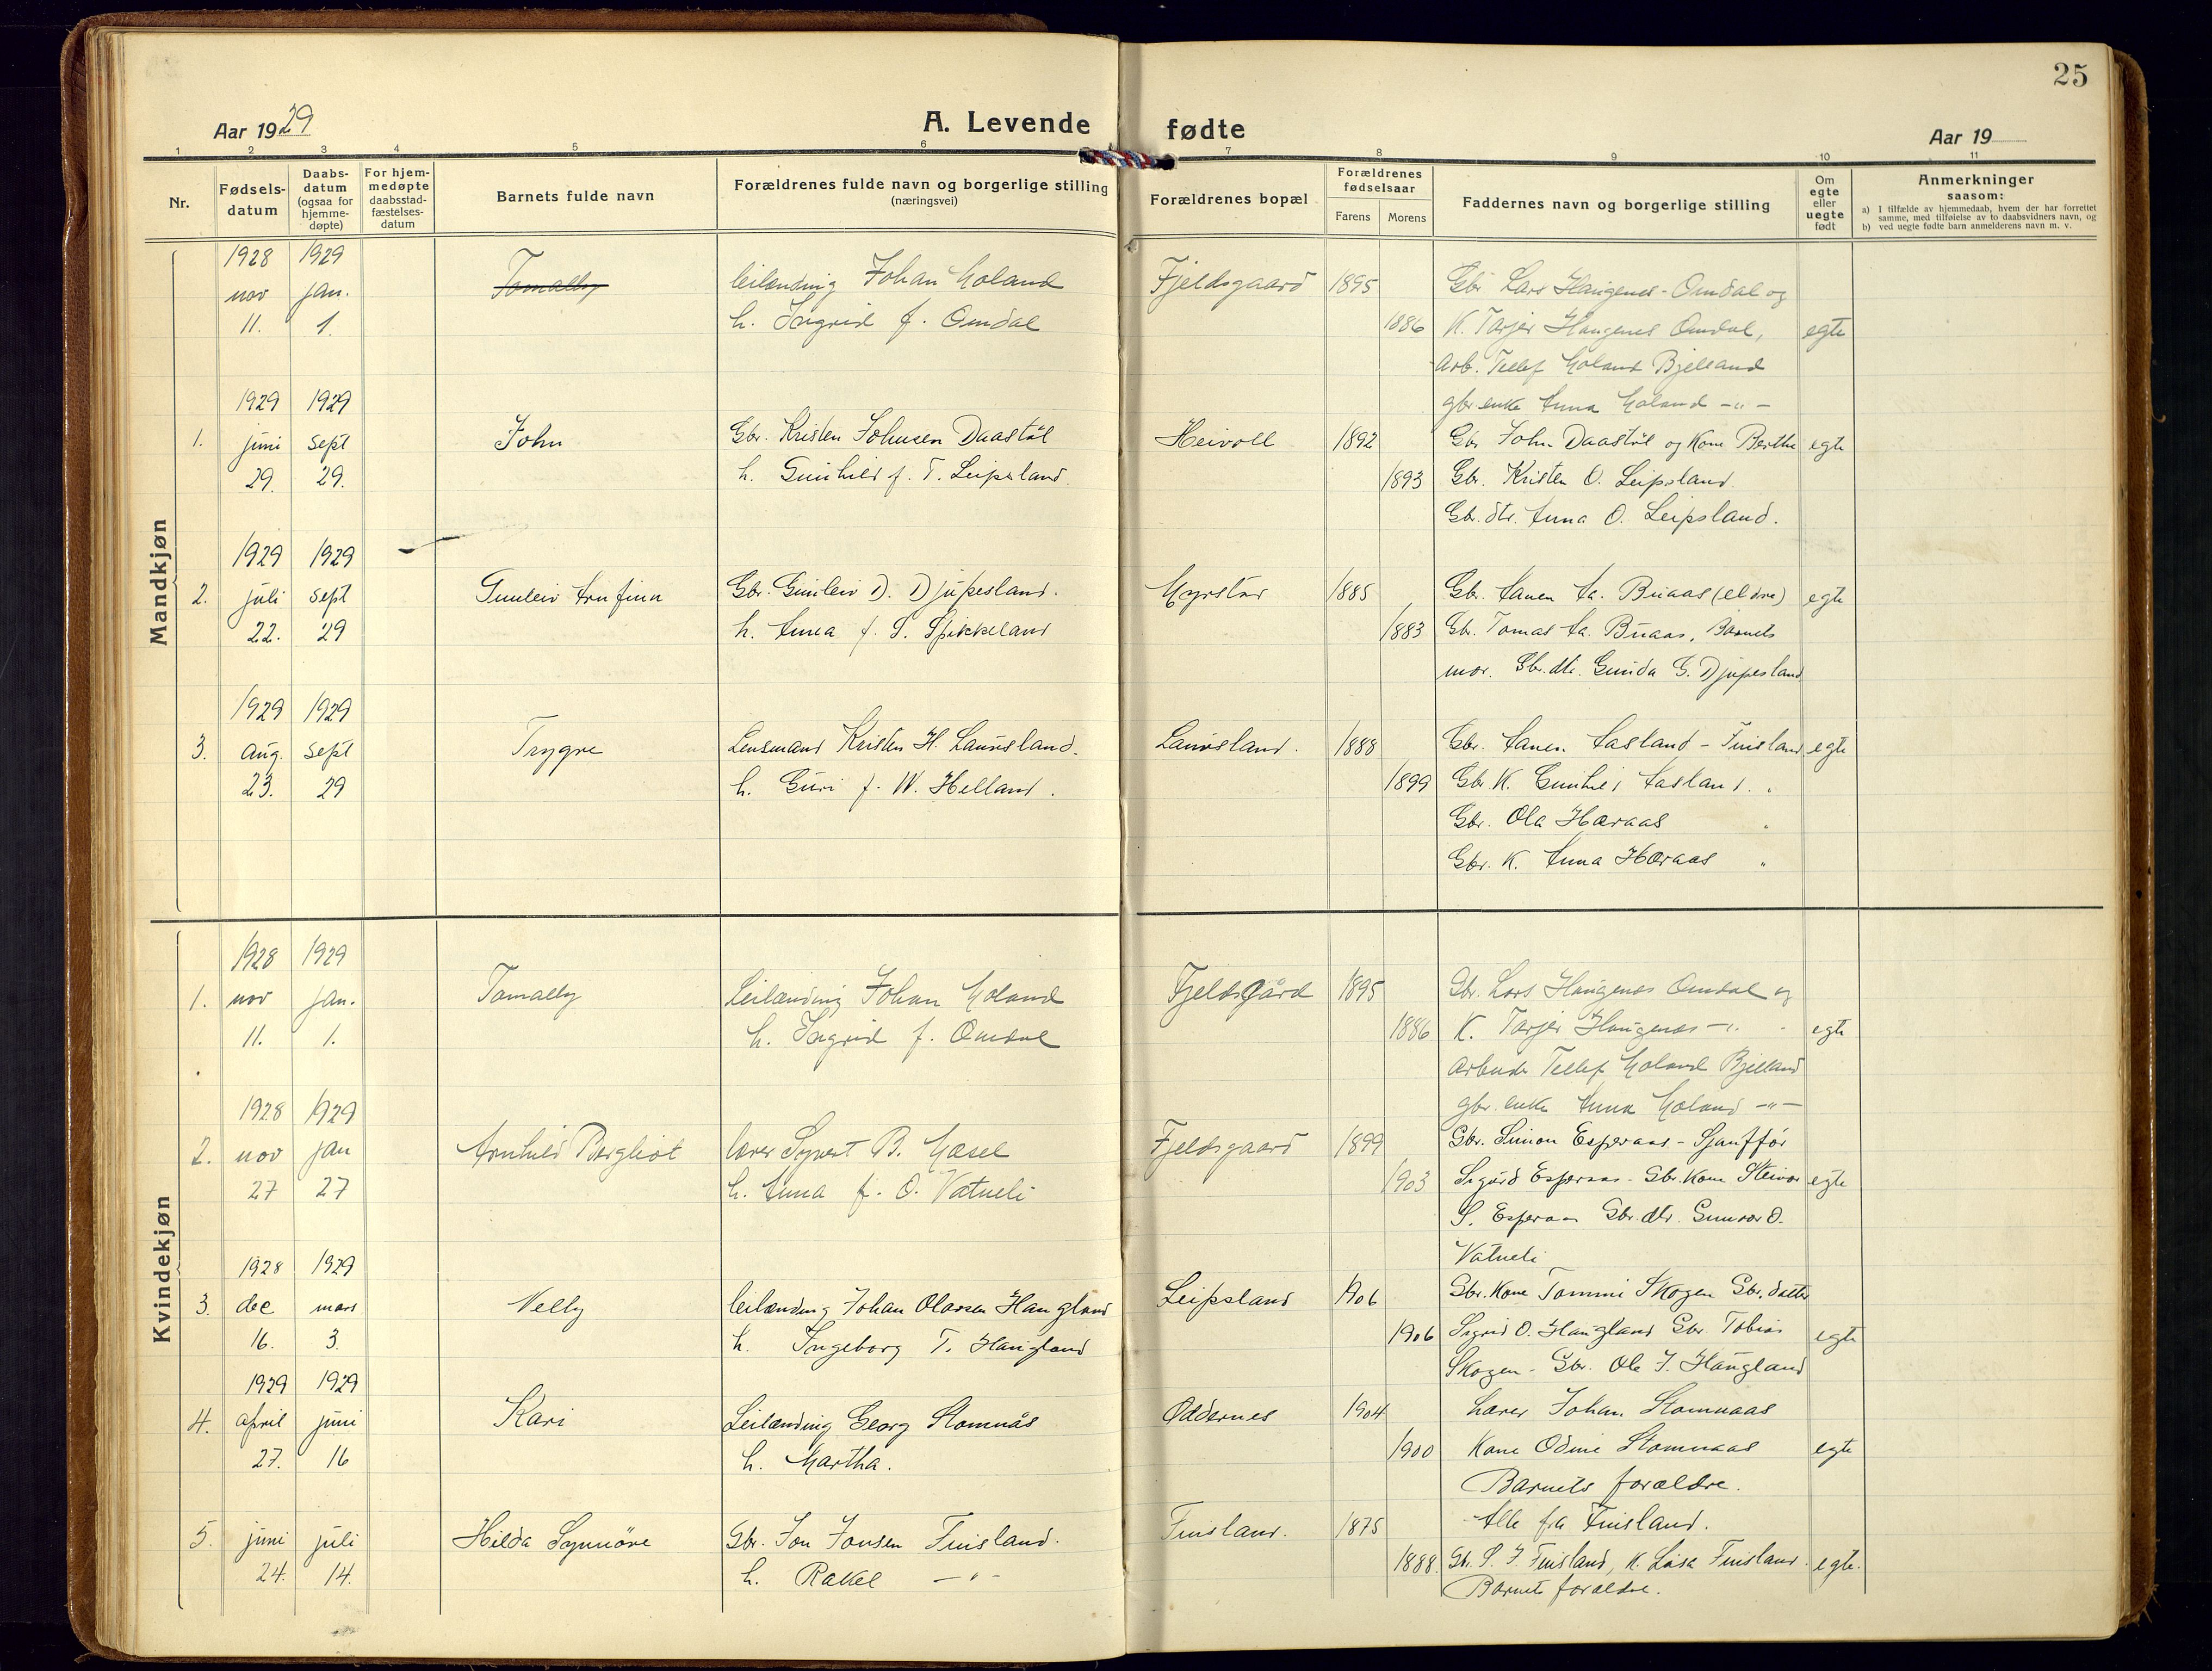 25
Aar 1929
A. Levende fødte
Aar 19
1 2 3 4 5 6 7 8 9 10 11
Nr.
Fødsels-
datum
Daabs-
datum
(ogsaa for
hjemme-
døpte)
For hjem-
medøpte
daabsstad-
fæstelses-
datum
Barnets fulde navn
Forældrenes fulde navn og borgerlige stilling
(næringsvei)
Forældrenes bopæl
Forældrenes
fødselsaar
Farens Morens
Faddernes navn og borgerlige stilling
Om
egte
eller
uegte
født
Anmerkninger
saasom:
a) I tilfælde av hjemmedaab, hvem der har forrettet
samme, med tilføielse av to daabsvidners navn, og
b) ved uegte fødte barn anmelderens navn m. v.
Mandkjøn
1928 1929
nov jan. Tomally leilænding Johan Holand Fjeldsgaard 1895 Gbr Lars Haugenes - Omdal og
11. 1. h. Ingrid f. Omdal 1886 K. Tarjer Haugenes Omdal, egte
Arb. Tellef Holand Bjelland
gbr enke Anna Holand -"-
1929 1929
1. juni sept John Gbr. Kristen Johnsen Daastøl Heivoll 1892 Gbr John Daastøl og Kone Berthe egte
29. 29. h. Gunhild f. T. Leipsland. 1893 Gbr. Kristen O. Leipsland.
Gbr. dtr. Anna O. Leipsland.
1929 1929
2. juli sept Gunleiv Arnfinn Gbr. Gunleiv D. Djupesland. Myrstør 1885 Gbr. Aanen Aa. Buaas (eldre) egte
22. 29 h. Anna f. S. Spikkeland 1883 Gbr. Tomas Aa. Buaas, Barnets
mor. Gbr. dtr. Gunda G. Djupesland
1929 1929
3. aug. sept Trygve Lensmand Kristen H. Lauvsland. Lauvsland. 1888 Gbr. Aanen Aasland - Finsland egte
23. 29 h. Guri f. W. Helland. 1899 Gbr K. Gunhild Aasland. "
Gbr. Ola Haraas "
Gbr. K. Anna Haraas "
Kvindekjøn
1928 1929
1. nov jan. Tomally Leilænding Johan Holand Fjeldsgård 1895 Gbr. Lars Haugenes Omdal og
11. 1. h. Ingrid f. Omdal 1886 K. Tarjer Haugenes -"- egte
Arbeider Tellef Holand Bjelland
gbr. enke Anna Holand -"-
1928 1929
2. nov jan Arnhild Bergliot lærer Syvert B. Mæsel Fjeldsgaard 1899 Gbr. Simon Esperaas - Sjauffør
27 27 h. Anna f. O. Vatneli 1903 Sigurd Esperaas - Gbr. Kone Steivor egte
S. Esperaas Gbr. dtr. Gunvor O.
Vatneli
1928 1929
3. dec mars Nelly leilænding Johan Olavsen Haugland Leipsland 1906 Gbr. Kone Tommi Skogen Gbr. datter
16. 3. h. Ingeborg T. Haugland 1906 Sigrid O. Haugland Gbr Tobias egte
Skogen - Gbr. Ole J. Haugland
1929 1929
4. april juni Kari Leilænding Georg Stomnås Oddernes 1904 Lærer Johan Stomnaas
27. 16 h. Martha. 1900 Kone Odine Stomnaas egte
Barnets forældre.
Alle fra Finsland.
5. juni juli Hilda Synnöve Gbr. Jon Jonsen Finsland. Finsland. 1875
24. 14. h. Rakel -"- 1888. Gb. S. J. Finsland, K. Lisa Finsland. egte.
Barnets forældre.